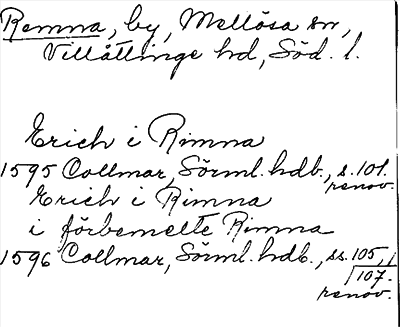 Remna, by, Mellösa sn,
Villåttinge hd, Söd. l.
Erich i Rimna
1595 Collmar, Sörml. hdb., s. 101.
renov.
Erich i Rimna
i förbemelte Rimna
1596 Collmar, Sörml. hdb., ss. 105, /
/107.
renov.